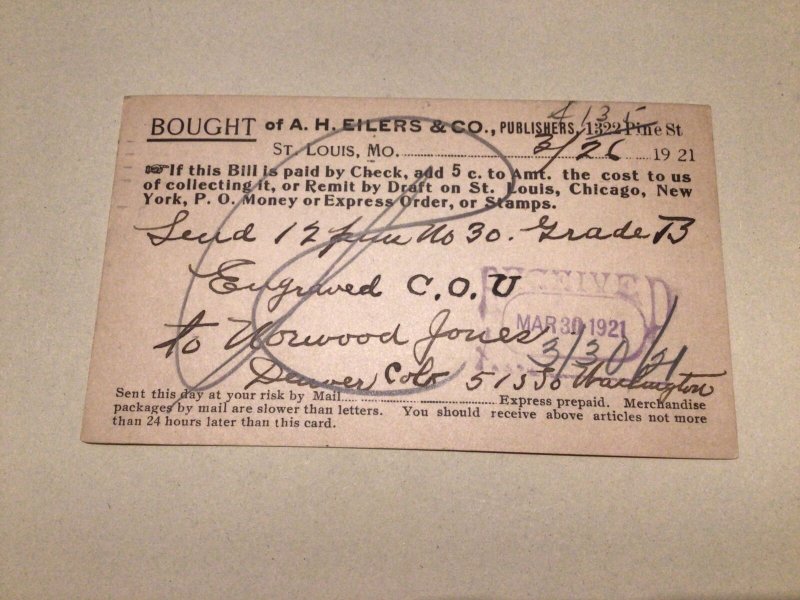 4135
BOUGHT of A. H. EILERS & CO., PUBLISHERS, 1322 Pine St
ST. LOUIS, MO. 3/26 1921
☞If this Bill is paid by Check, add 5 c. to Amt. the cost to us
of collecting it, or Remit by Draft on St. Louis, Chicago, New
York, P. O. Money or Express Order, or Stamps.
Send 12 No 30. Grade B
Engraved C.O.U
RECEIVED
MAR 30 1921
to Norwood Jones
3/30/21
Denver Colo Washington
Sent this day at your risk by Mail............Express prepaid. Merchandise
packages by mail are slower than letters. You should receive above articles not more
than 24 hours later than this card.